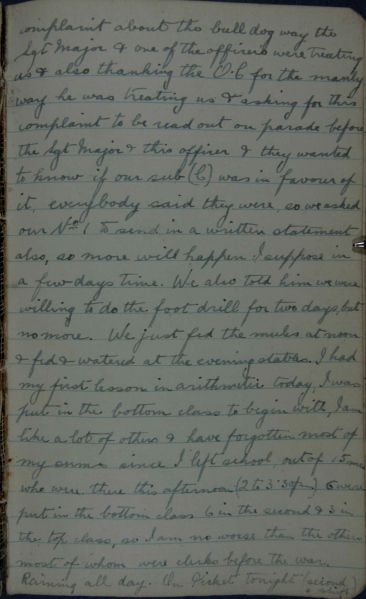 complaint about the bull dog way the
Sgt Major & one of the officers were treating
us & also thanking the O.C for the manly
way he was treating us & asking for this
complaint to be read out on parade before
the Sgt Major & this officer & they wanted
to know if our sub (C) was in favour of
it, everybody said they were, so we asked
our No 1 to send in a written statement
also, so more will happen I suppose in
a few days time. We also told him we were
willing to do the foot drill for two days, but
no more. We just fed the mules at noon
& fed & watered at the evening stables. I had
my first lesson in arithmetic today, I was
put in the bottom class to begin with, I am
like a lot of others & have forgotten most of
my sums since I left school, out of 15 men
who were there this afternoon (2 to 3.30pm) 6 were
put in the bottom class 6 in the second & 3 in
the top class, so I am no worse than the others
most of whom were clerks before the war.
Raining all day. On Picket tonight (second)